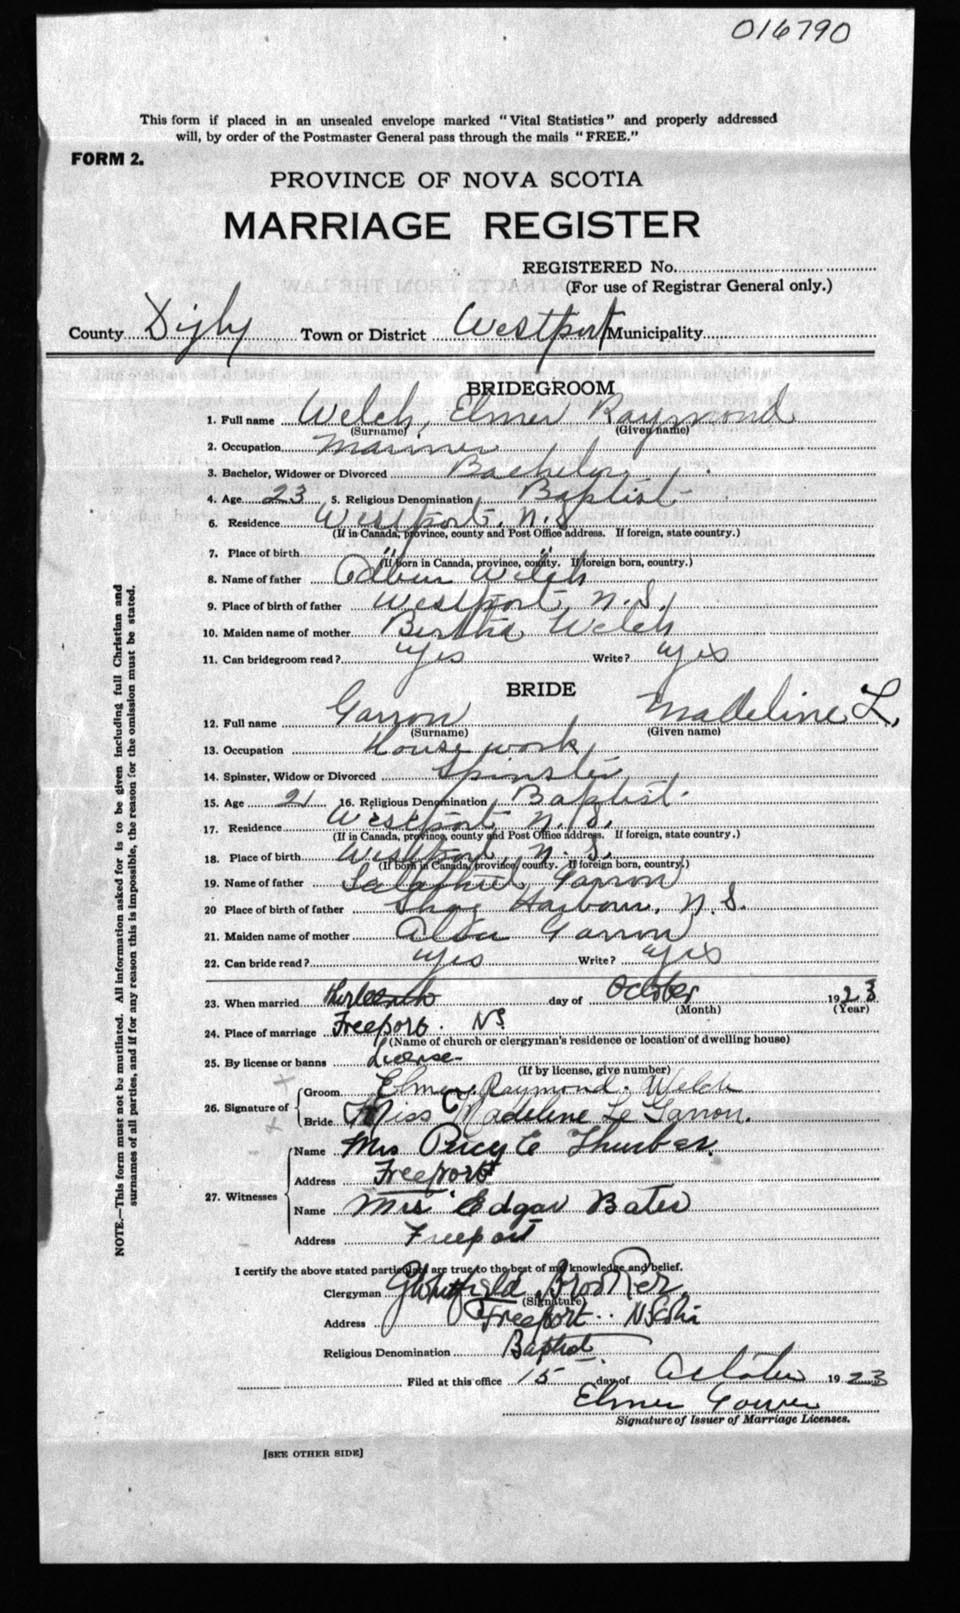 016790
This form if placed in an unsealed envelope marked "Vital Statistics" and properly addressed
will, by order of the Postmaster General pass through the mails "FREE."
FORM 2.
PROVINCE OF NOVA SCOTIA
MARRIAGE REGISTER
REGISTERED No.
(For use of Registrar General only.)
County Digby Town or District Westport Municipality
BRIDEGROOM
1. Full name Welch, Elmer Raymond
(Surname) (Given name)
2. Occupation Mariner
3. Bachelor, Widower or Divorced Bachelor
4. Age 23 5. Religious Denomination Baptist
6. Residence Westport, N.S.
(If in Canada, province, county and Post Office address. If foreign, state country.)
7. Place of birth " "
(If born in Canada, province, county. If foreign born, country.)
8. Name of father Welch
9. Place of birth of father Westport, N.S.
10. Maiden name of mother Bertha Welch
11. Can bridegroom read? yes Write? yes
BRIDE
12. Full name Garron Madeline L.
(Surname) (Given name)
13. Occupation House work
14. Spinster, Widow or Divorced Spinster
15. Age 21 16. Religious Denomination Baptist
17. Residence Westport, N.S.
(If in Canada, province, county and Post Office address. If foreign, state country.)
18. Place of birth Westport, N.S.
(If born in Canada, province, county. If foreign born, country.)
19. Name of father Salathiel Garron
20 Place of birth of father Shag Harbour, N.S.
21. Maiden name of mother Garron
22. Can bride read? yes Write? yes
23. When married thirteenth day of October 1923
(Month) (Year)
24. Place of marriage Freeport. NS
(Name of church or clergyman's residence or location of dwelling house)
25. By license or banns License
(If by license, give number)
26. Signature of
Groom Elmer Raymond Welch
Bride Miss Madeline Le Garron.
27. Witnesses
Name Mrs Percy C Thurber
Address Freeport
Name Mrs Edgar Bates
Address Freeport
I certify the above stated particulars are true to the best of my knowledge and belief.
Clergyman G Whitfield Brooker
(Signature)
Address Freeport. N Scotia
Religious Denomination Baptist
Filed at this office 15 day of October 1923
Elmer Gower
Signature of Issuer of Marriage Licenses.
[SEE OTHER SIDE]
NOTE.—This form must not be mutilated. All information asked for is to be given including full Christian and
surnames of all parties, and if for any reason this is impossible, the reason for the omission must be stated.